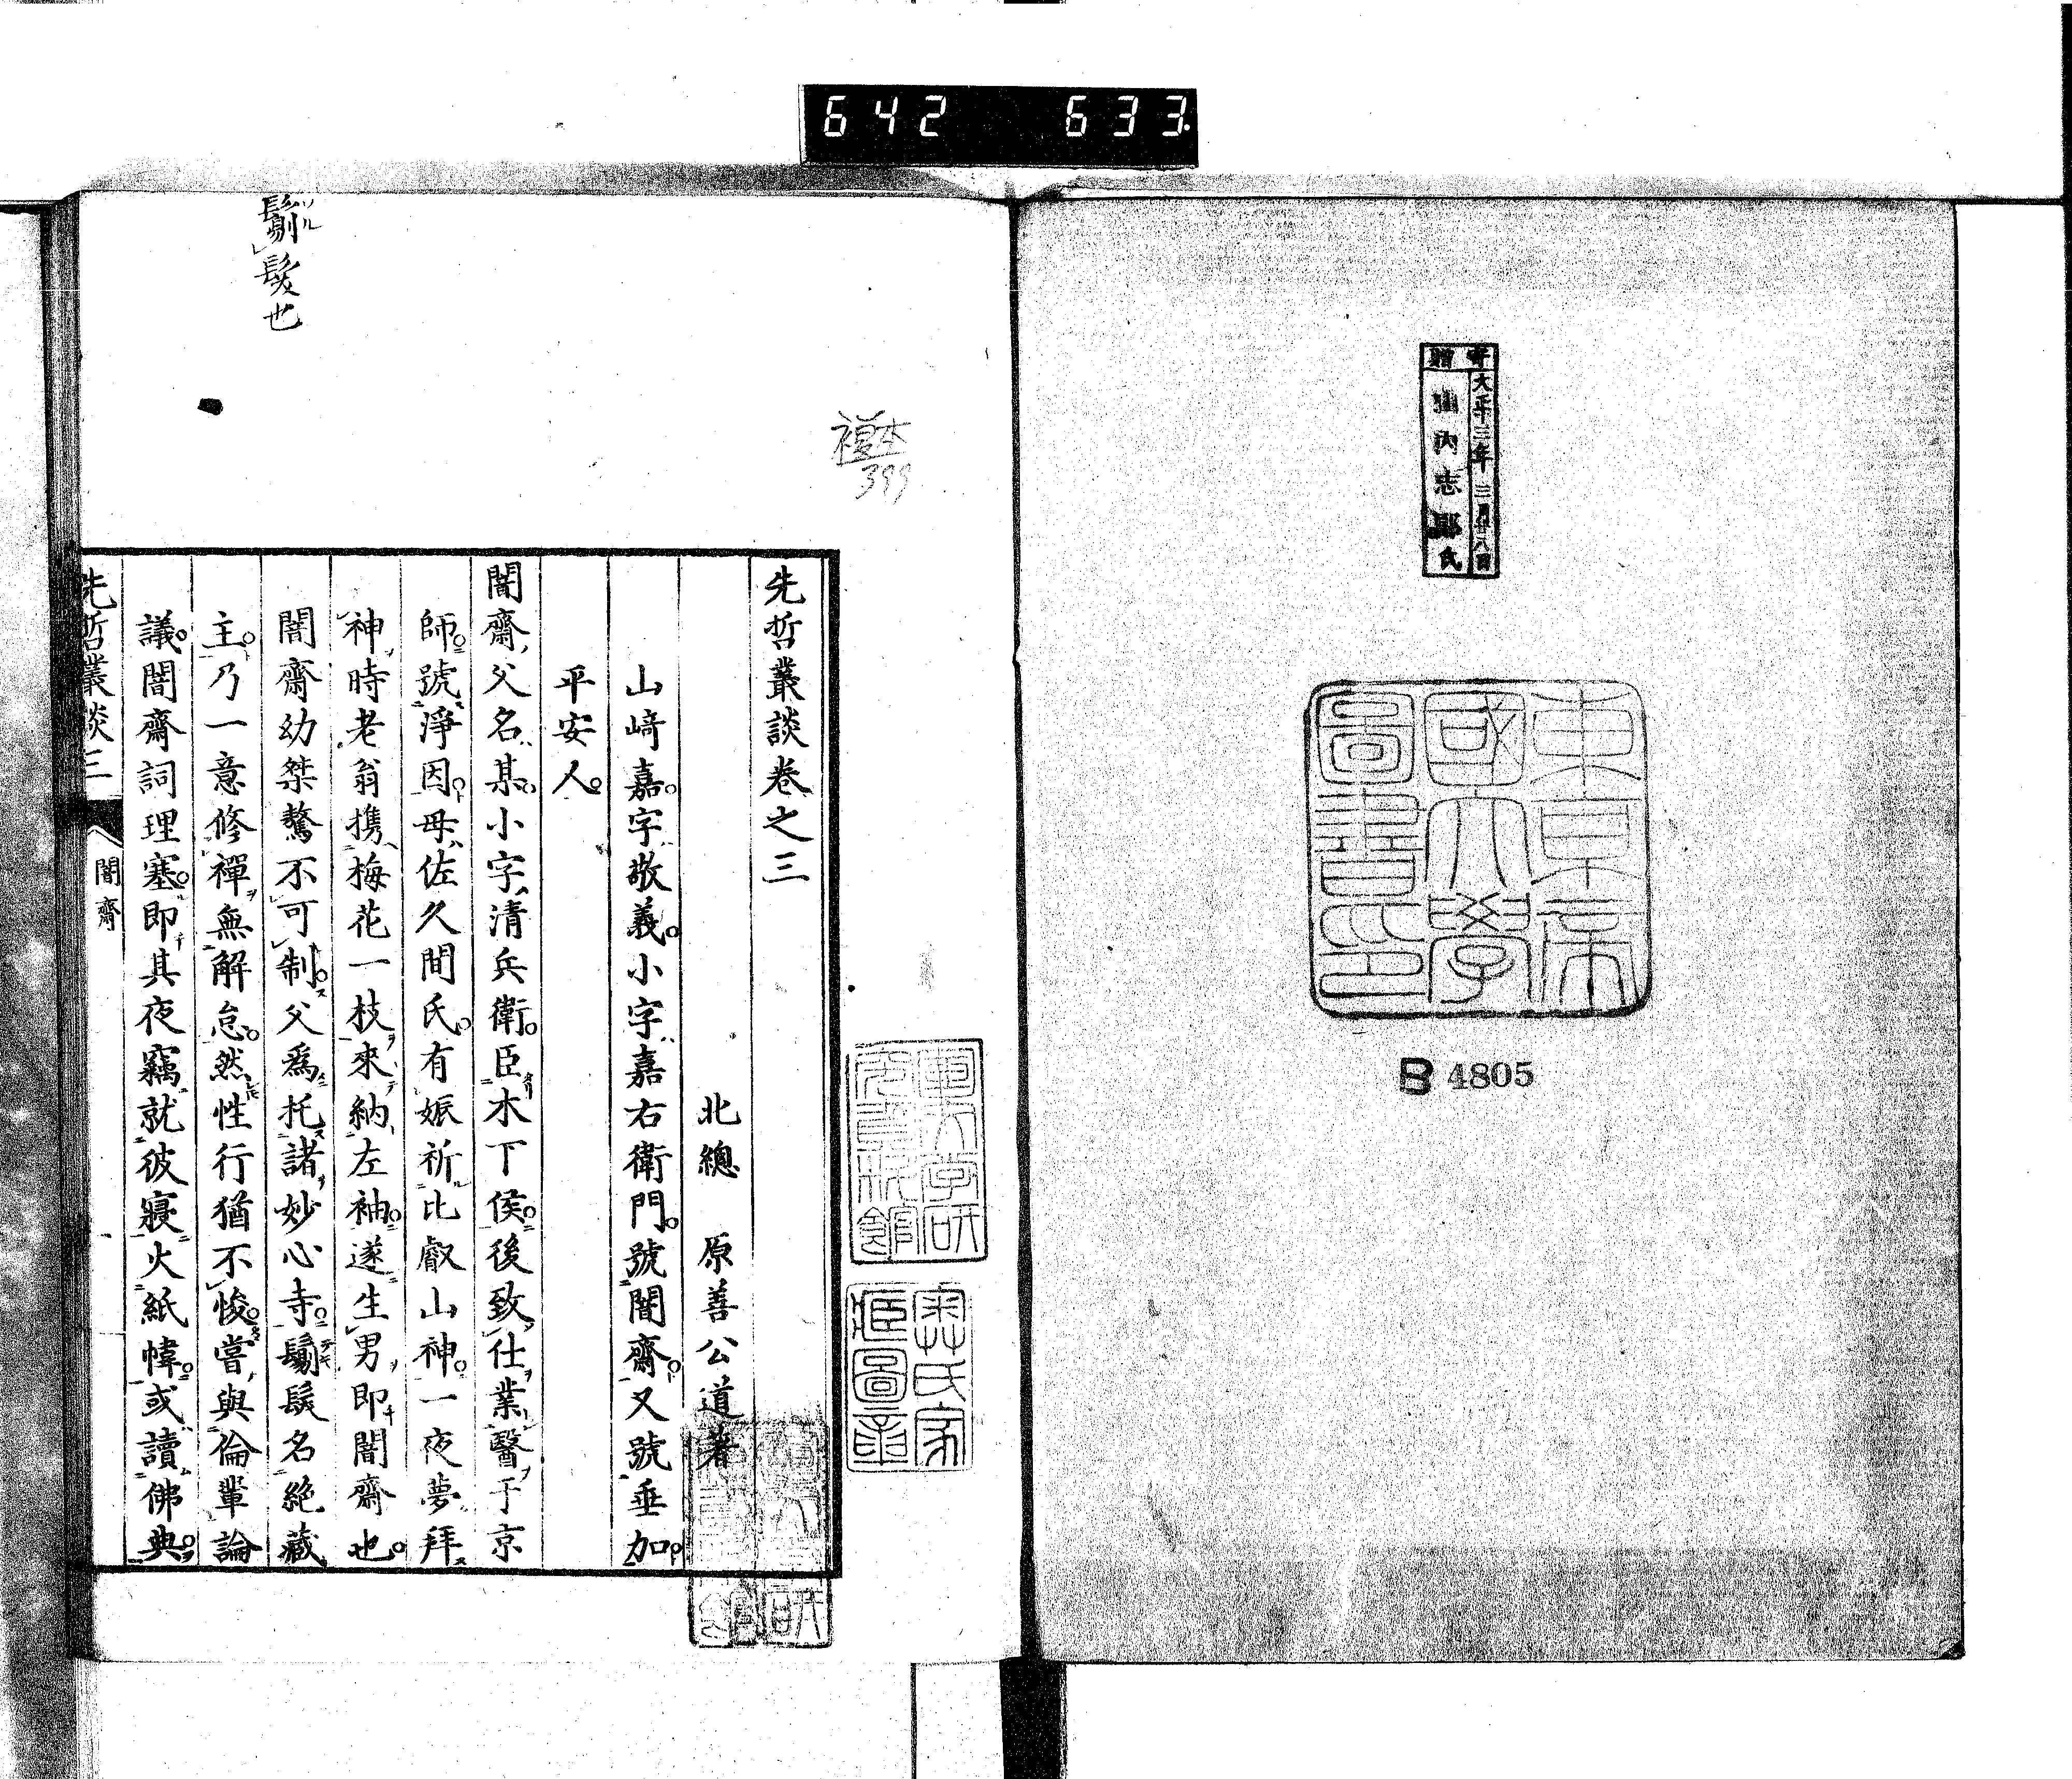 642 633
寄贈
大正十三年三月廿八日
山內志郎氏
東京帝
國大學
圖書印
B 4805
複本
399
先哲叢談卷之三
北總 原善公道著
山﨑嘉。字敬義。小字嘉右衛門。號闇齋。又號垂加。
平安人。
闇齋父名某。小字清兵衛。臣木下侯。後致仕業醫于京
師。號淨因。母佐久間氏。有娠祈比叡山神。一夜夢拜
神時老翁携梅花一枝來納左袖。遂生男即闇齋也。
闇齋幼桀驁不可制。父爲托諸妙心寺。鬄髮名絶藏
主。乃一意修禪無解怠。然性行猶不悛。嘗與倫輩論
議。闇齋詞理塞。即其夜竊就彼寢火紙幃。或讀佛典。
先哲叢談三
闇齋
髮也